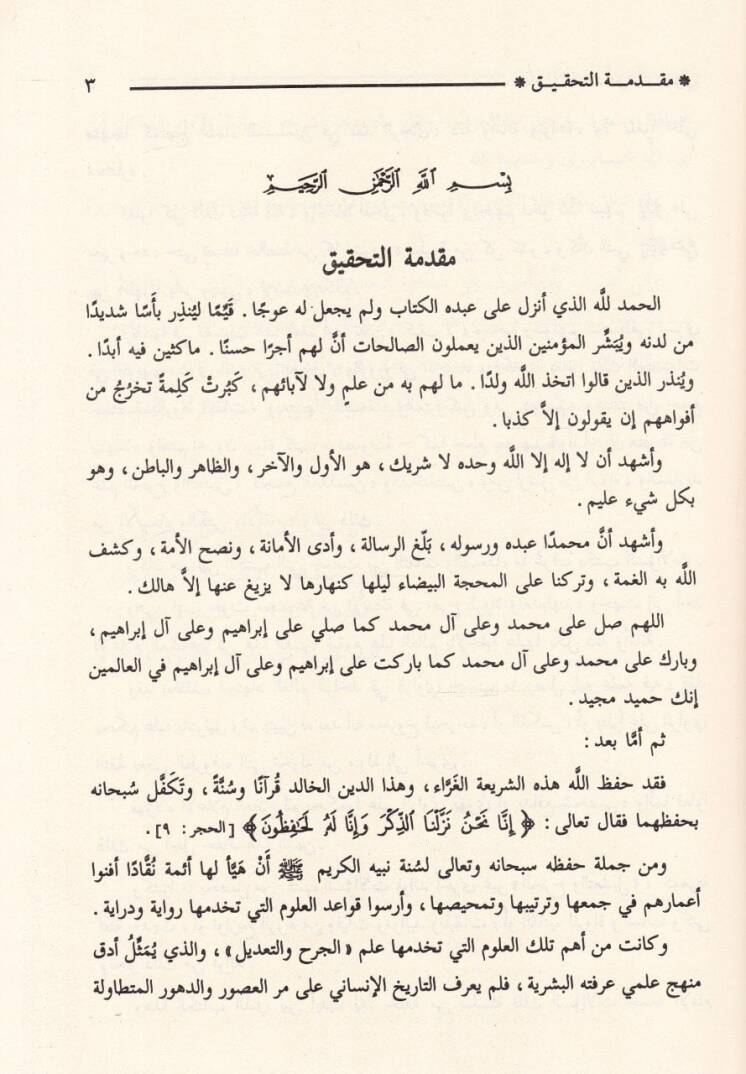 * مقدمة التحقيق * ٣
بسم الله الرحمن الرحيم
مقدمة التحقيق
الحمد لله الذي أنزل على عبده الكتاب ولم يجعل له عوجًا . قَيِّمًا ليُنذِر بأسًا شديدًا
من لدنه ويُبَشِّر المؤمنين الذين يعملون الصالحات أنَّ لهم أجرًا حسنًا . ماكثين فيه أبدًا .
ويُنذر الذين قالوا اتخذ اللَّه ولدًا . ما لهم به من علمٍ ولا لآبائهم ، كَبُرتْ كَلِمةً تخرُجُ من
أفواههم إن يقولون إلاَّ كذبا .
وأشهد أن لا إله إلا اللَّه وحده لا شريك ، هو الأول والآخر ، والظاهر والباطن ، وهو
بكل شيء عليم .
وأشهد أنَّ محمدًا عبده ورسوله ، بَلّغ الرسالة ، وأدى الأمانة ، ونصح الأمة ، وكشف
اللَّه به الغمة ، وتركنا على المحجة البيضاء ليلها كنهارها لا يزيغ عنها إلاَّ هالك .
اللهم صل على محمد وعلى آل محمد كما صلي على إبراهيم وعلى آل إبراهيم ،
وبارك على محمد وعلى آل محمد كما باركت على إبراهيم وعلى آل إبراهيم في العالمين
إنك حميد مجيد .
ثم أمَّا بعد :
فقد حفظ اللَّه هذه الشريعة الغَرَّاء ، وهذا الدين الخالد قُرآنًا وسُنَّةً ، وتَكَفَّل سُبحانه
بحفظهما فقال تعالى : ﴿ إِنَّا نَحْنُ نَزَّلْنَا الذِّكْرَ وَإِنَّا لَهُ لَحَافِظُونَ ﴾ [الحجر: ٩] .
ومن جملة حفظه سبحانه وتعالى لسُنة نبيه الكريم ﷺ أَنْ هَيَّأ لها أئمة نُقَّادًا أفنوا
أعمارهم في جمعها وترتيبها وتمحيصها ، وأرسوا قواعد العلوم التي تخدمها رواية ودراية .
وكانت من أهم تلك العلوم التي تخدمها علم «الجرح والتعديل» ، والذي يُمَثِّلُ أدق
منهج علمي عرفته البشرية ، فلم يعرف التاريخ الإنساني على مر العصور والدهور المتطاولة